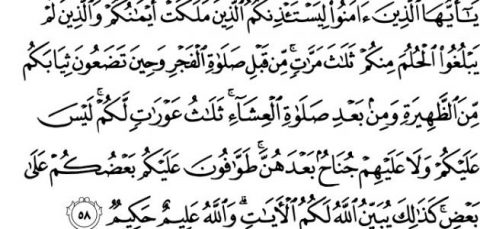 يَـٰٓأَيُّهَا ٱلَّذِينَ ءَامَنُوا۟ لِيَسْتَـْٔذِنكُمُ ٱلَّذِينَ مَلَكَتْ أَيْمَـٰنُكُمْ وَٱلَّذِينَ لَمْ
يَبْلُغُوا۟ ٱلْحُلُمَ مِنكُمْ ثَلَـٰثَ مَرَّٰتٍ ۚ مِّن قَبْلِ صَلَوٰةِ ٱلْفَجْرِ وَحِينَ تَضَعُونَ ثِيَابَكُم
مِّنَ ٱلظَّهِيرَةِ وَمِنۢ بَعْدِ صَلَوٰةِ ٱلْعِشَآءِ ۚ ثَلَـٰثُ عَوْرَٰتٍ لَّكُمْ ۚ لَيْسَ
عَلَيْكُمْ وَلَا عَلَيْهِمْ جُنَاحٌۢ بَعْدَهُنَّ ۚ طَوَّٰفُونَ عَلَيْكُم بَعْضُكُمْ عَلَىٰ
بَعْضٍ ۚ كَذَٰلِكَ يُبَيِّنُ ٱللَّهُ لَكُمُ ٱلْـَٔايَـٰتِ ۗ وَٱللَّهُ عَلِيمٌ حَكِيمٌ ٥٨